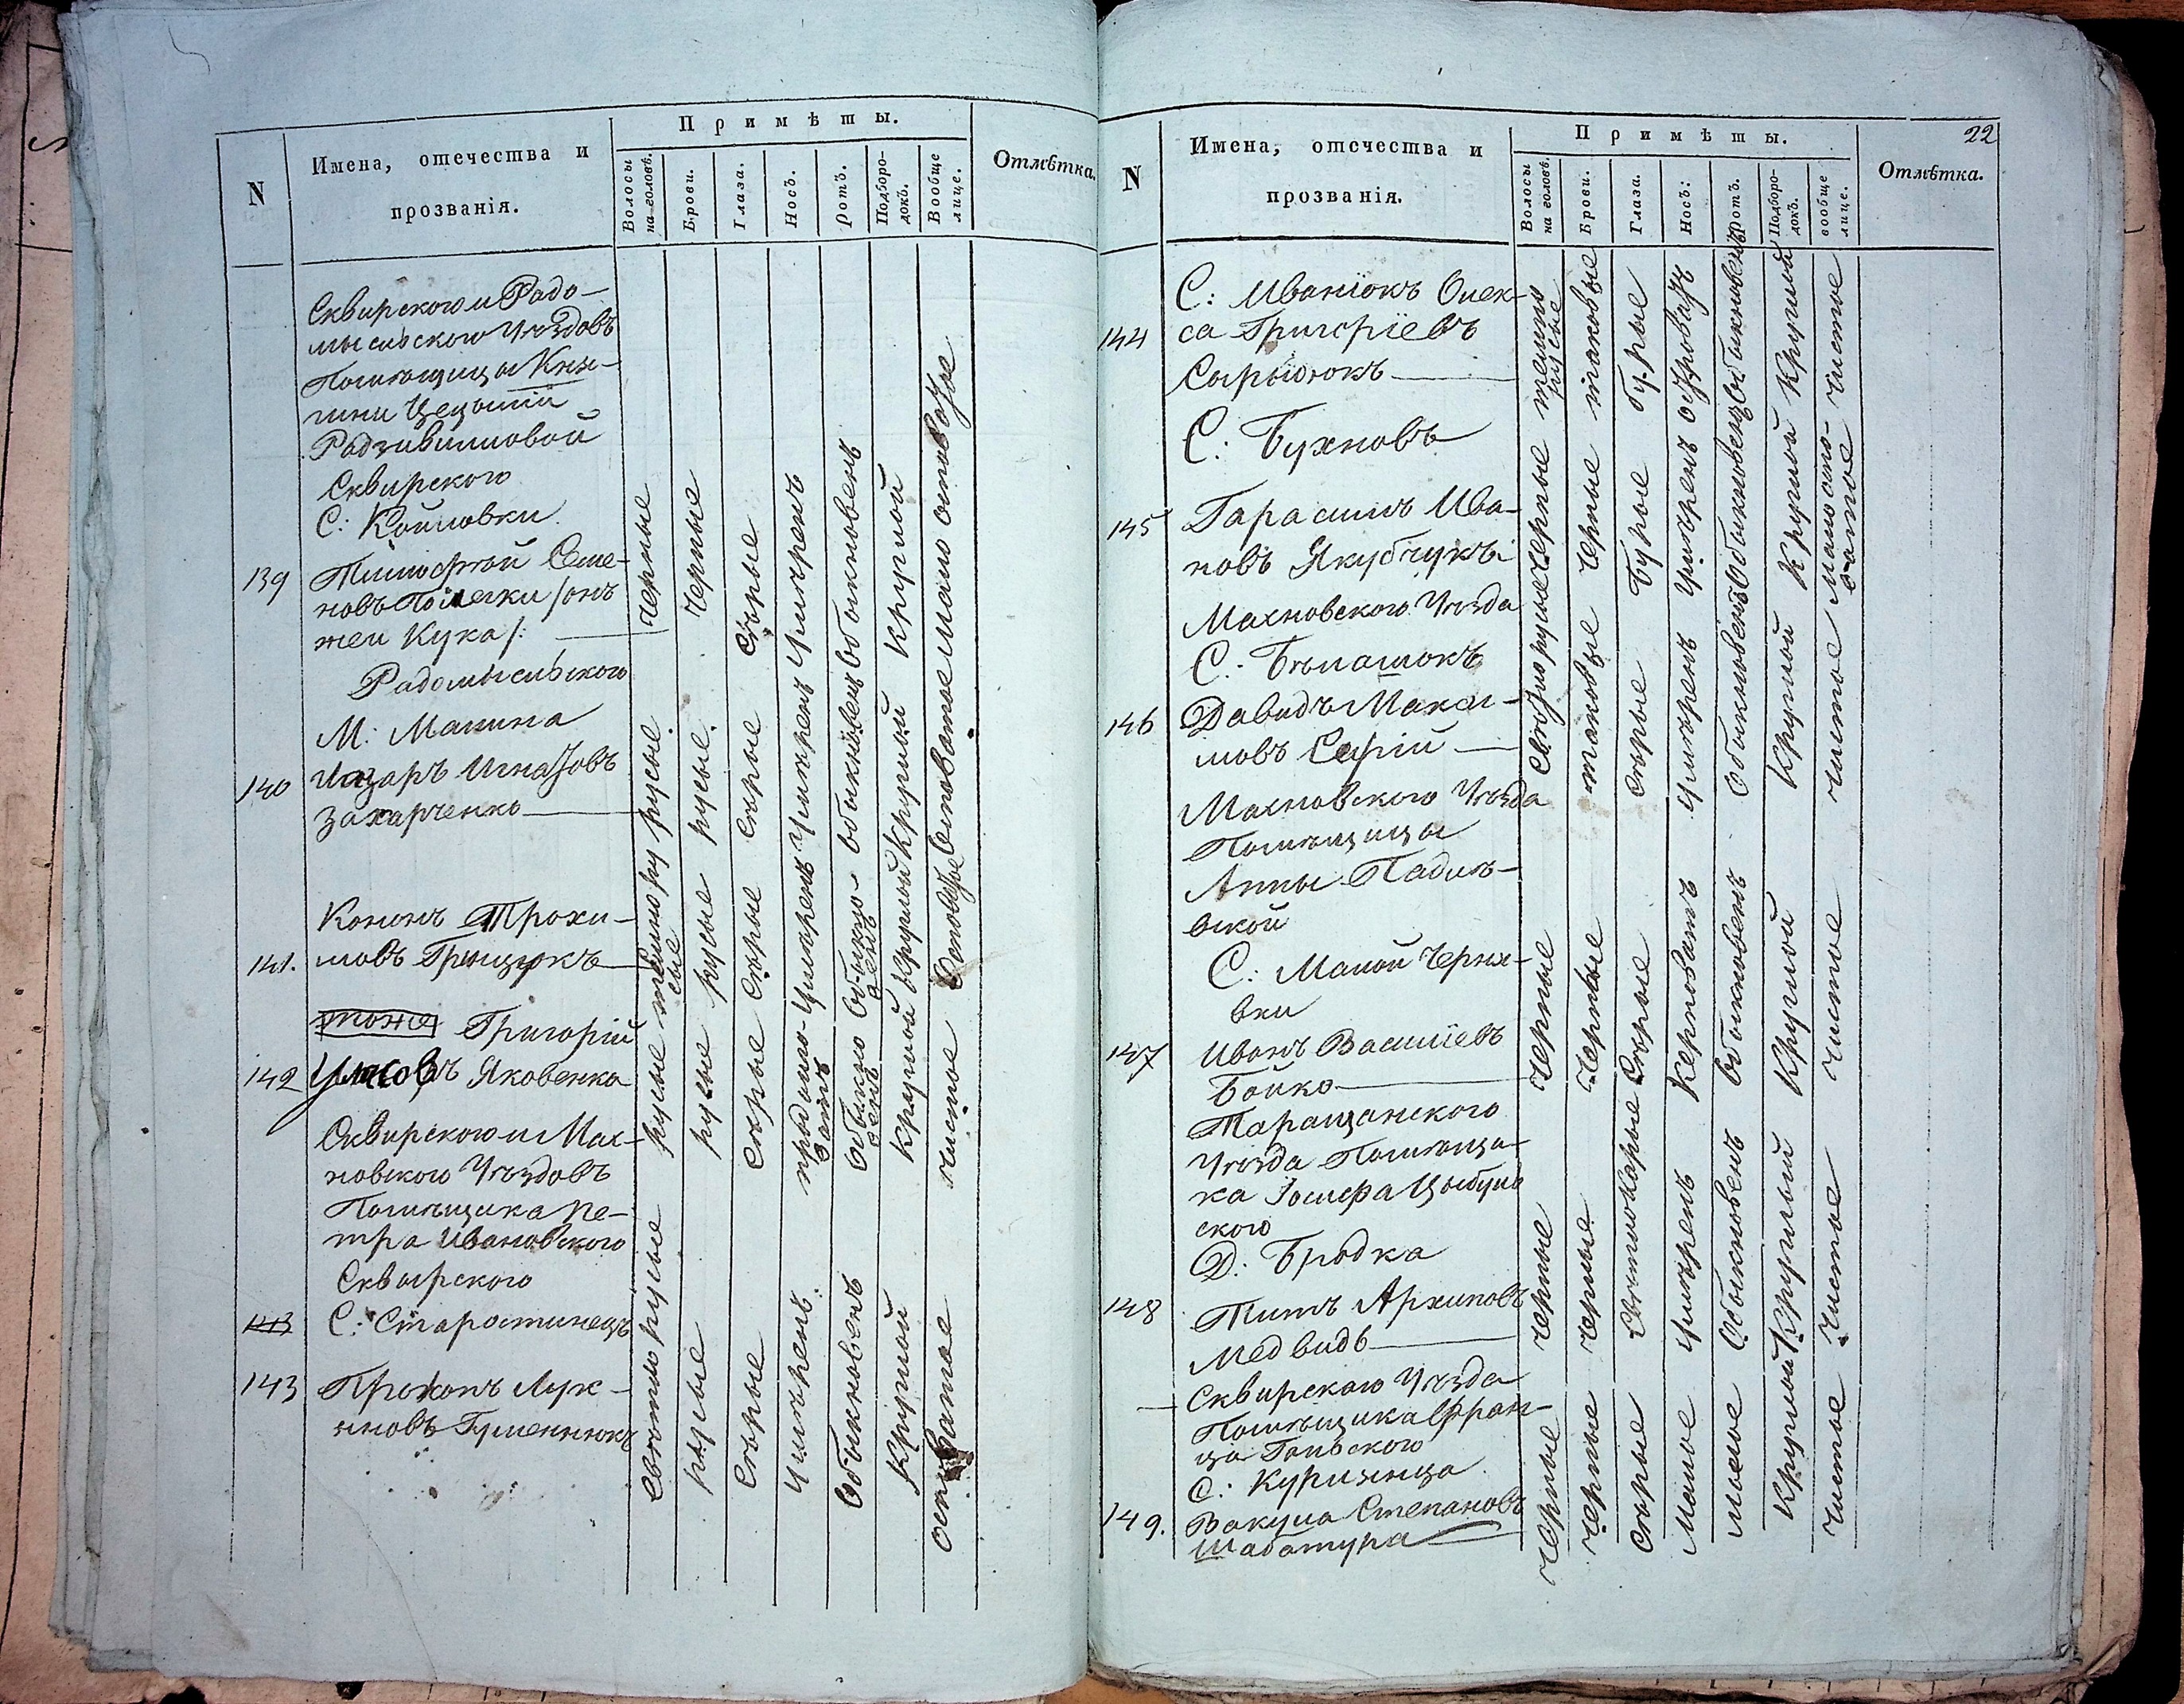 N
Имена, отечества и
прозванія.
Примѣты.
Волосы
на головѣ.
Брови.
Глаза.
Носъ.
Ротъ.
Подборо-
докъ.
Вообще
лице.
Отмѣтка.
Сквирского и Радо-
мысльского Уѣздовъ
Помѣщицы Кня-
гини
Радзивиловой
Сквирского
С: Койловки
139 Тимофтій Семе-
новъ /онъ
жеи Кука/:
черные
черные
сѣрые
Умѣренъ
обыкновенъ
круглой
мало осповатое
Радомысльского
М: Малина
140 Назаръ Игнатовъ
Захарченко
русые
русые
сѣрые
Умѣренъ
обыкновенъ
круглый
осповатое
141. Кононъ Трохи-
мовъ Грищукъ
темно ру
сые
русые
сѣрые
Умѣренъ
обыкно-
венъ
круглой
осповатое
тоже Григорій
142 Яковенко
русые
русые
сѣрые
продолго-
ватъ
обыкно
венъ
круглой
чистое
Сквирского и Мах-
новского Уѣздовъ
Помѣщика Пе-
тра Ивановского
Сквирского
143 С: Старостинецъ
143 Прокопъ Лукя-
новъ Гуменнюкъ
свѣтло русые
русые
сѣрые
Умѣренъ
Обыкновенъ
круглой
осповатое
22
N
Имена, отечества и
прозванія.
Примѣты.
Волосы
на головѣ.
Брови.
Глаза.
Носъ:
Ротъ.
Подборо-
докъ.
вообще
лице.
Отмѣтка.
С: Иванїокъ Олек-
144 са Григорїевъ
Сырыдюкъ
темно
русые
таковые
бурые
обыкновенъ
круглой
чистое
С: Бухновъ
145 Гарасимъ Ива-
новъ Якубчукъ
черные
черные
бурые
Умѣренъ
Обыкновенъ
круглой
мало оспо-
ватое
Махновского Уѣзда
С: Бѣлашокъ
146 Давидъ Макси-
мовъ Сѣрій
Свѣтло русые
таковые
сѣрые
Умѣренъ
обыкновенъ
круглой
чистое
Махновского Уѣзда
Помѣщицы
Анны Падлѣ-
вской
С: Малой Черня-
вки
147 Иванъ Василїевъ
Бойко
черные
черные
сѣрые
керповатъ
обыкновенъ
круглой
чистое
Таращанского
Уѣзда Помѣщи-
ка Іосифа Цыбуль
ского
Д: Бродка
148 Титъ Архиповъ
Медвидь
черные
черные
свѣтлокарые
Умѣренъ
Обыкновенъ
круглый
чистое
Сквирского Уѣзда
Помѣщика Фран-
ца Гольского
С: Курилнца
149. Вакула Степановъ
Шабатура
черные
черные
сѣрые
малое
малое
круглой
чистое